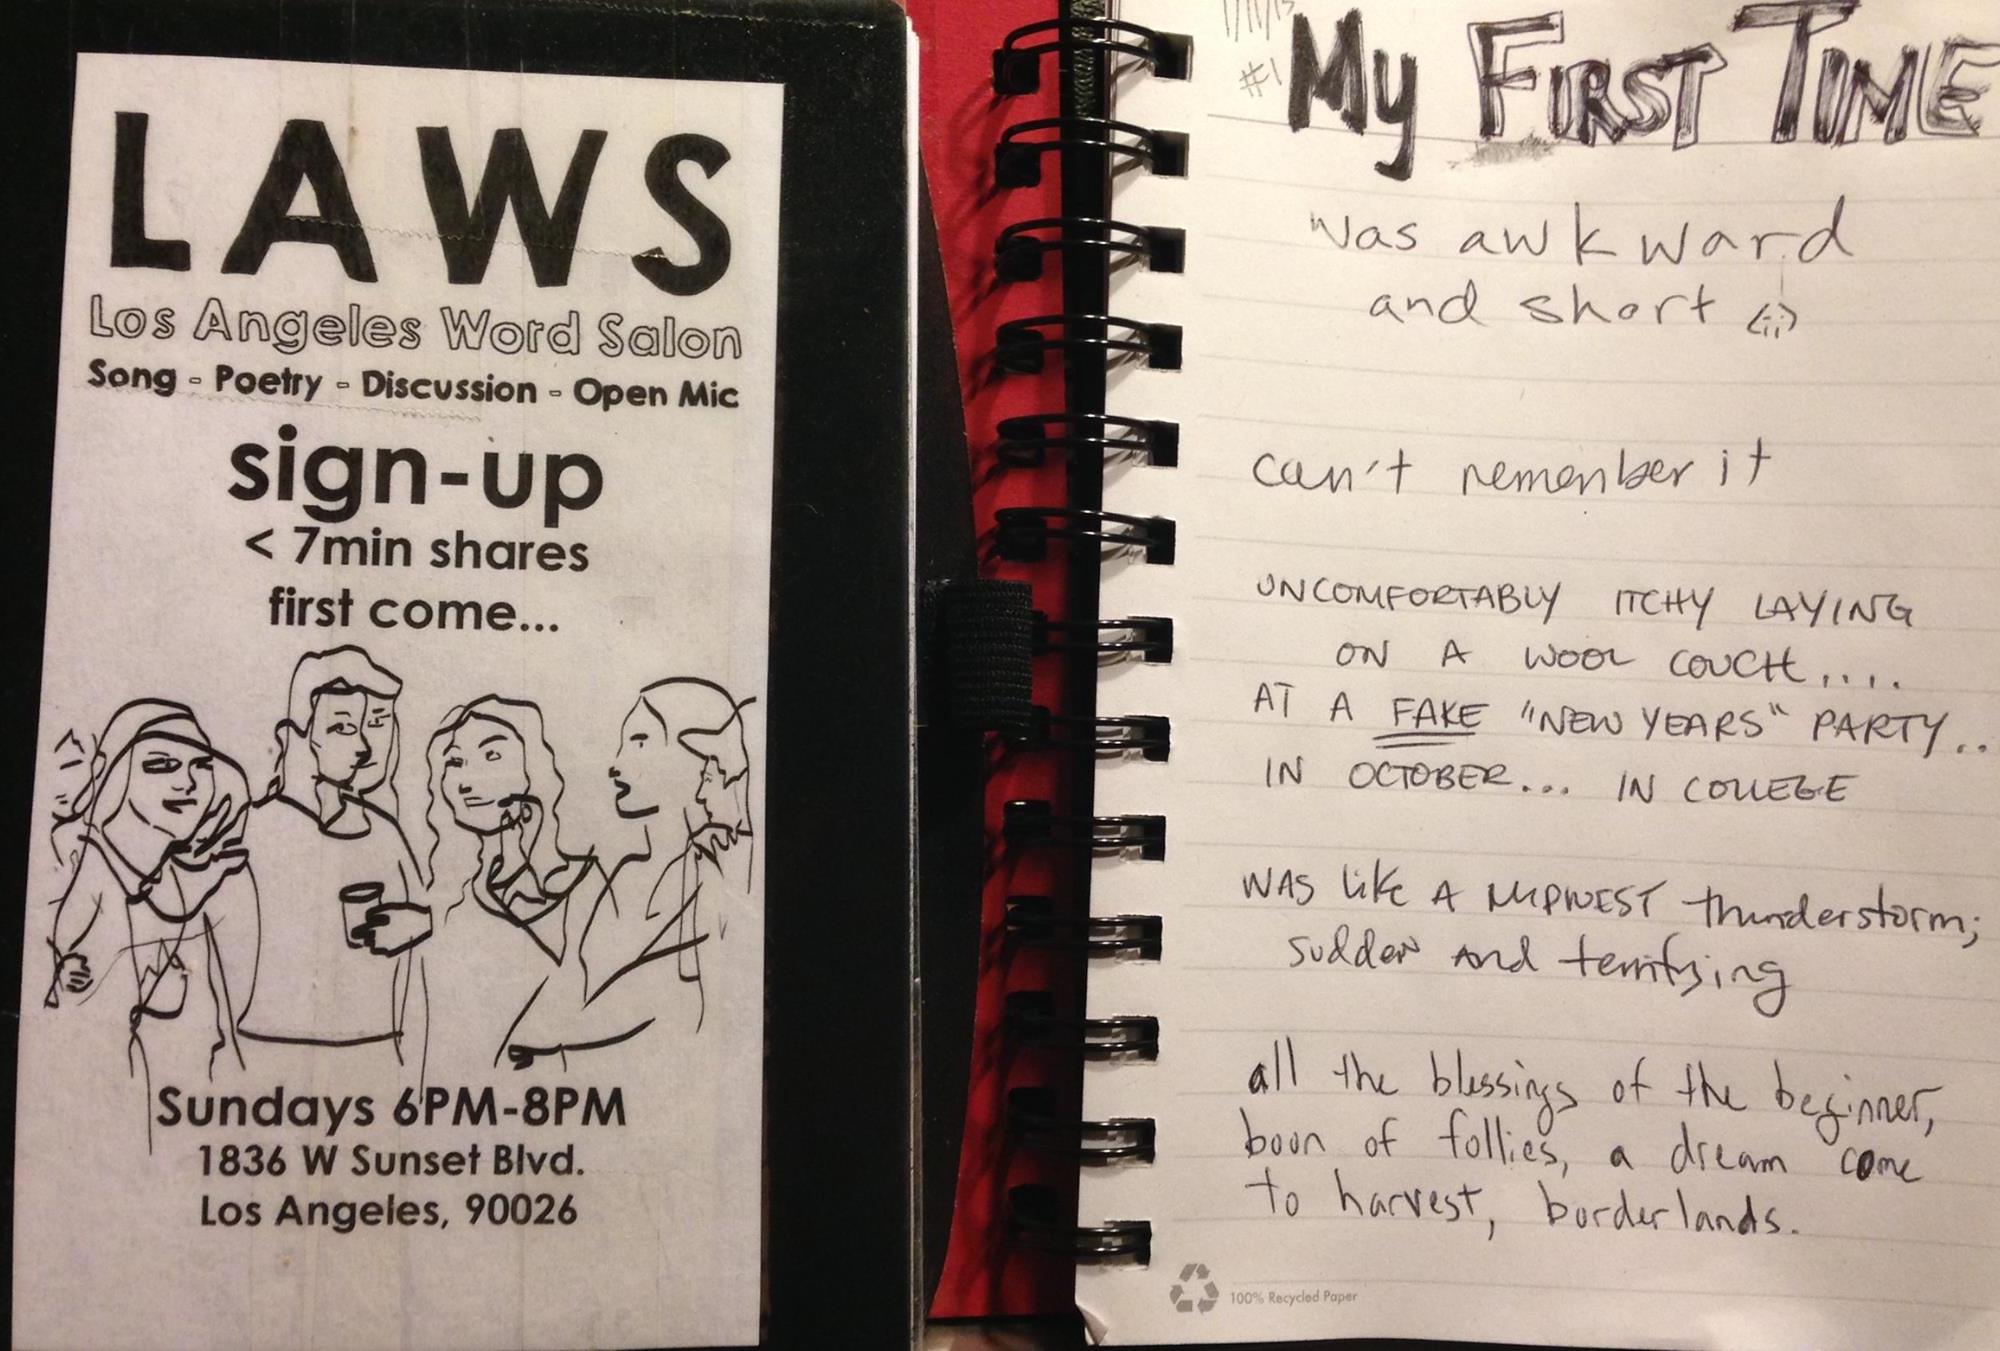 LAWS
Los Angeles Word Salon
Song - Poetry - Discussion - Open Mic
sign-up
< 7min shares
first come...
Sundays 6PM-8PM
1836 W Sunset Blvd.
Los Angeles, 90026
#1
My First Time
was awkward
and short
can't remember it
UNCOMFORTABLY ITCHY LAYING
ON A WOOL COUCH....
AT A FAKE "NEW YEARS" PARTY..
IN OCTOBER... IN COLLEGE
WAS like A MIDWEST thunderstorm;
sudden and terrifying
all the blessings of the beginner,
boon of follies, a dream come
to harvest, borderlands.
100% Recycled Paper